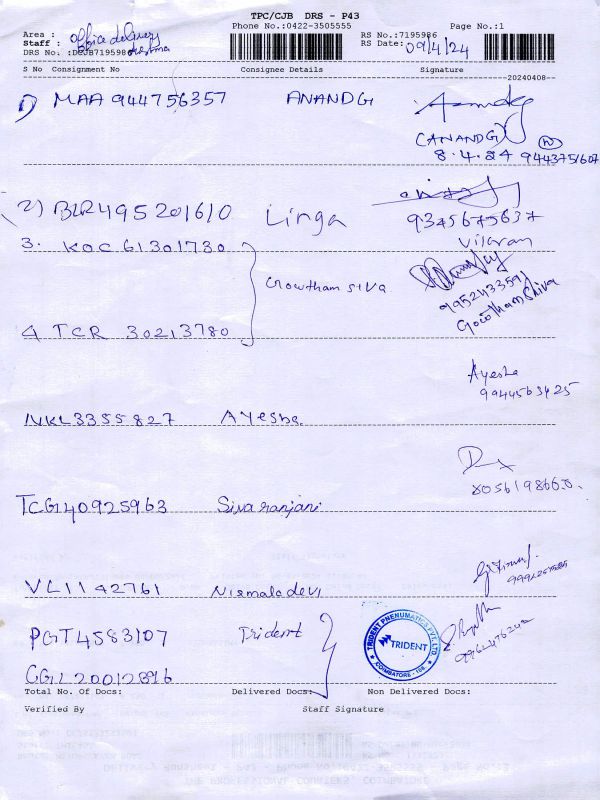 TPC/CJB DRS - P43
Phone No.:0422-3505555 Page No.:1
Area : Office delivery RS No.:7195986
Staff : RS Date: 09/4/24
DRS No. :DCJB7195986
S No Consignment No Consignee Details Signature
20240408
1) MAA 944756357 ANANDG
(ANANDG)
8.4.24 9443751607
2) BLR495201610 Linga 9345675637
3. KOC 61301730 Gowtham siva
4 TCR 30213780 Gowtham Shiva
Ayesha
NKL3355827 Ayesha 9944563425
TCG140925963 Sivaranjani
VL1142761 Nirmaladevi
PGT4583107 Trident
TRIDENT PNEUMATICS PVT. LTD
TRIDENT
COIMBATORE
CGL20012896
Total No. Of Docs: Delivered Docs: Non Delivered Docs:
Verified By Staff Signature